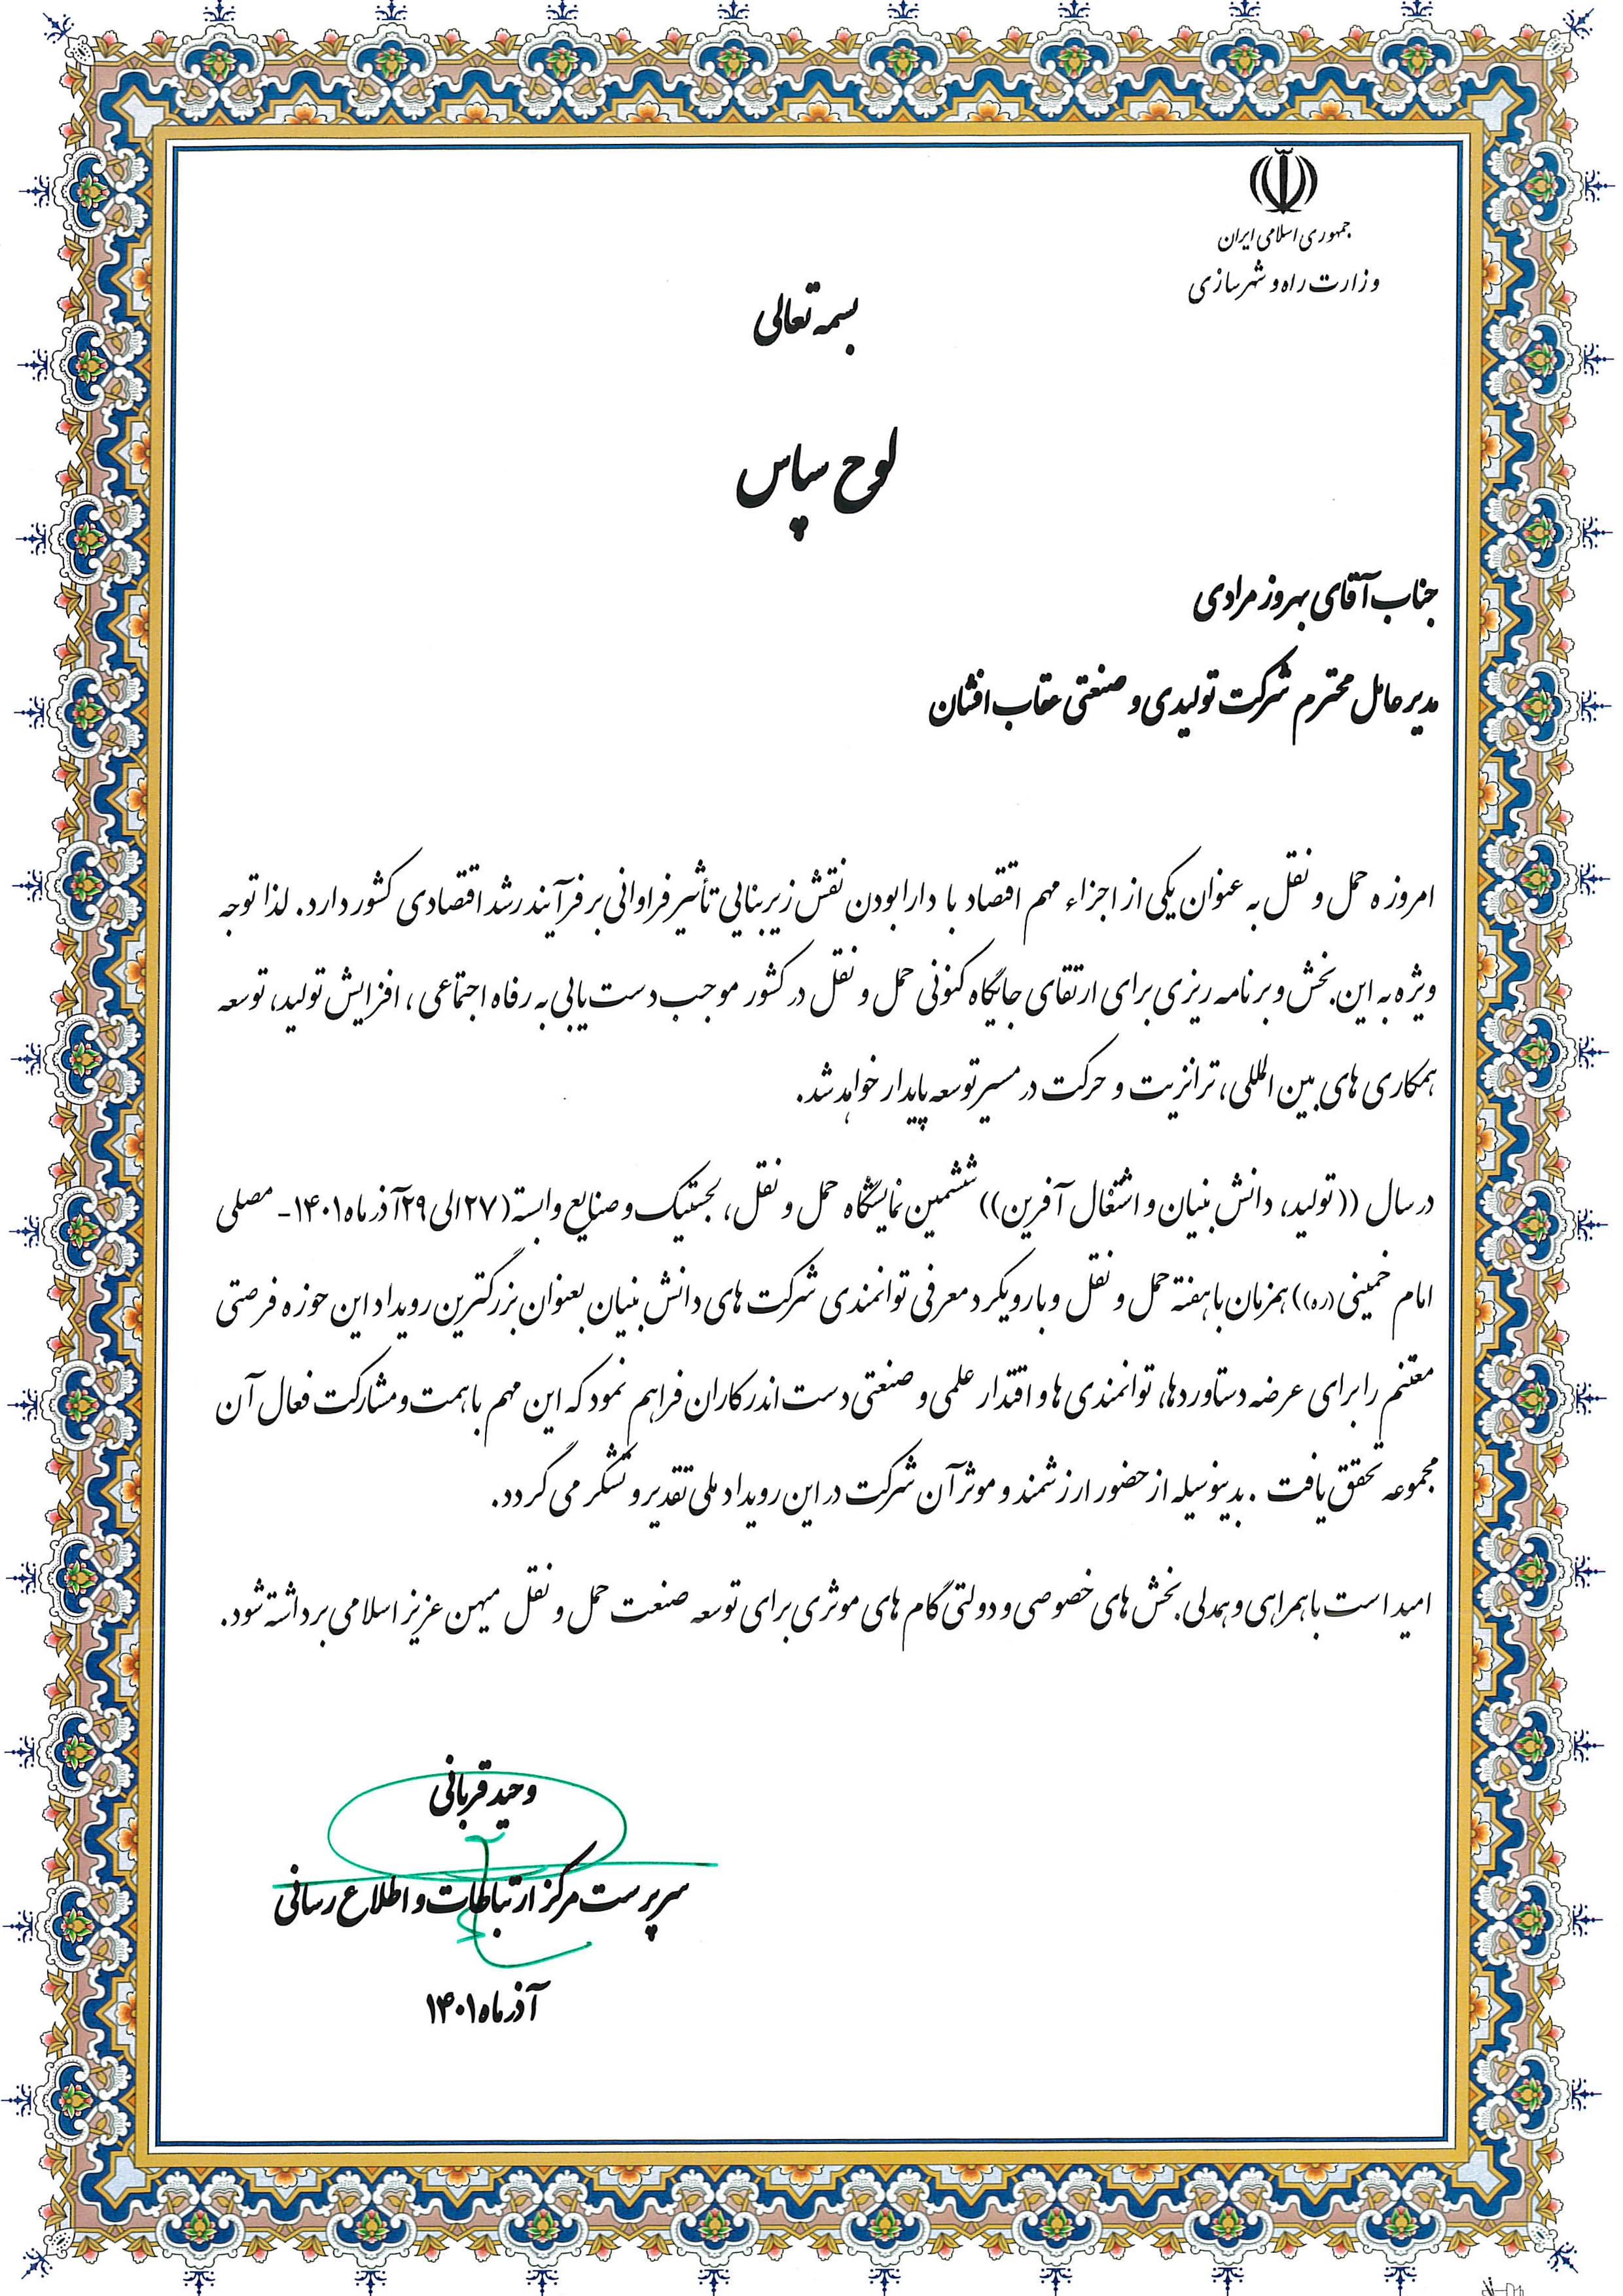 جمهوری اسلامی ایران
وزارت راه و شهرسازی
بسمه تعالی
لوح سپاس
جناب آقای بهروز مرادی
مدیر عامل محترم شرکت تولیدی و صنعتی عقاب افشان
امروزه حمل و نقل به عنوان یکی از اجزاء مهم اقتصاد با دارا بودن نقش زیربنایی تأثیر فراوانی بر فرآیند رشد اقتصادی کشور دارد. لذا توجه
ویژه به این بخش و برنامه ریزی برای ارتقای جایگاه کنونی حمل و نقل در کشور موجب دست یابی به رفاه اجتماعی، افزایش تولید، توسعه
همکاری های بین المللی، ترانزیت و حرکت در مسیر توسعه پایدار خواهد شد.
در سال ((تولید، دانش بنیان و اشتغال آفرین)) ششمین نمایشگاه حمل و نقل، لجستیک و صنایع وابسته (۲۷ الی ۲۹ آذر ماه ۱۴۰۱- مصلی
امام خمینی (ره)) همزمان با هفته حمل و نقل و با رویکرد معرفی توانمندی شرکت های دانش بنیان بعنوان بزرگترین رویداد این حوزه فرصتی
مغتنم را برای عرضه دستاوردها، توانمندی ها و اقتدار علمی و صنعتی دست اندرکاران فراهم نمود که این مهم با همت و مشارکت فعال آن
مجموعه تحقق یافت . بدینوسیله از حضور ارزشمند و موثر آن شرکت در این رویداد ملی تقدیر و تشکر می گردد.
امید است با همراهی و همدلی بخش های خصوصی و دولتی گام های موثری برای توسعه صنعت حمل و نقل میهن عزیز اسلامی برداشته شود.
وحید قربانی
سرپرست مرکز ارتباطات و اطلاع رسانی
آذر ماه ۱۴۰۱